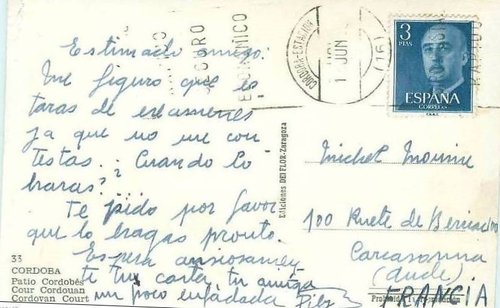 Estimado amigo:
Me figuro que es
taras de examenes
ya que no me con
testas.. Cuando lo
haras??
Te pido por favor
que lo hagas pronto.
Espera ansiosamen
te tu carta, tu amiga
un poco enfadada
33
CORDOBA
Patio Cordobés
Cour Cordouan
Cordovan Court
Ediciones DEL FLOR-Zaragoza
CORDOBA-ESTACION
1 JUN
(16)
3
PTAS
ESPAÑA
CORREOS
Michel
100 Ruete de
Carcasonna
(Aude)
FRANCIA